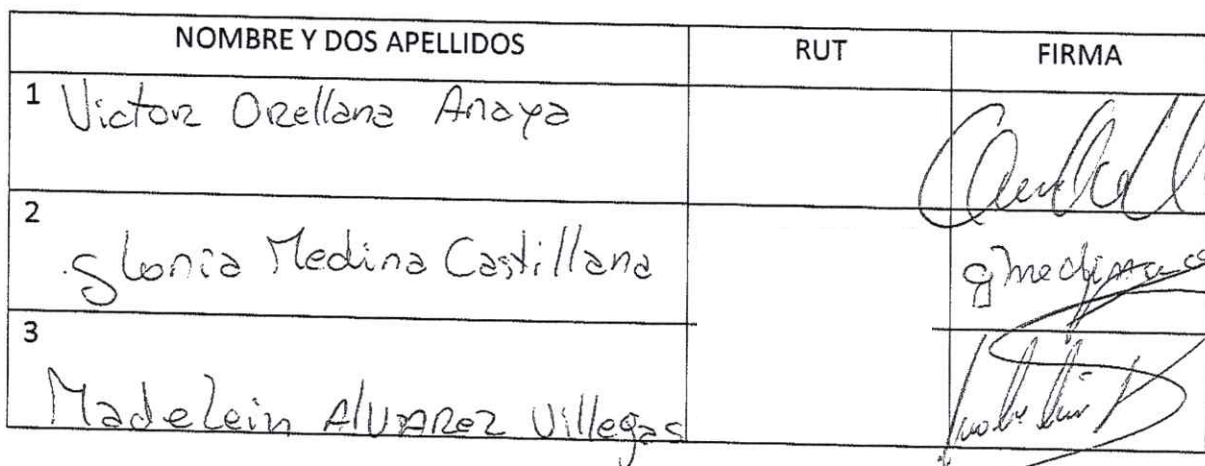 NOMBRE Y DOS APELLIDOS RUT FIRMA
1 Victor Orellana Anaya
2 Gloria Medina Castillana gmedina
3 Madelein Alvarez Villegas